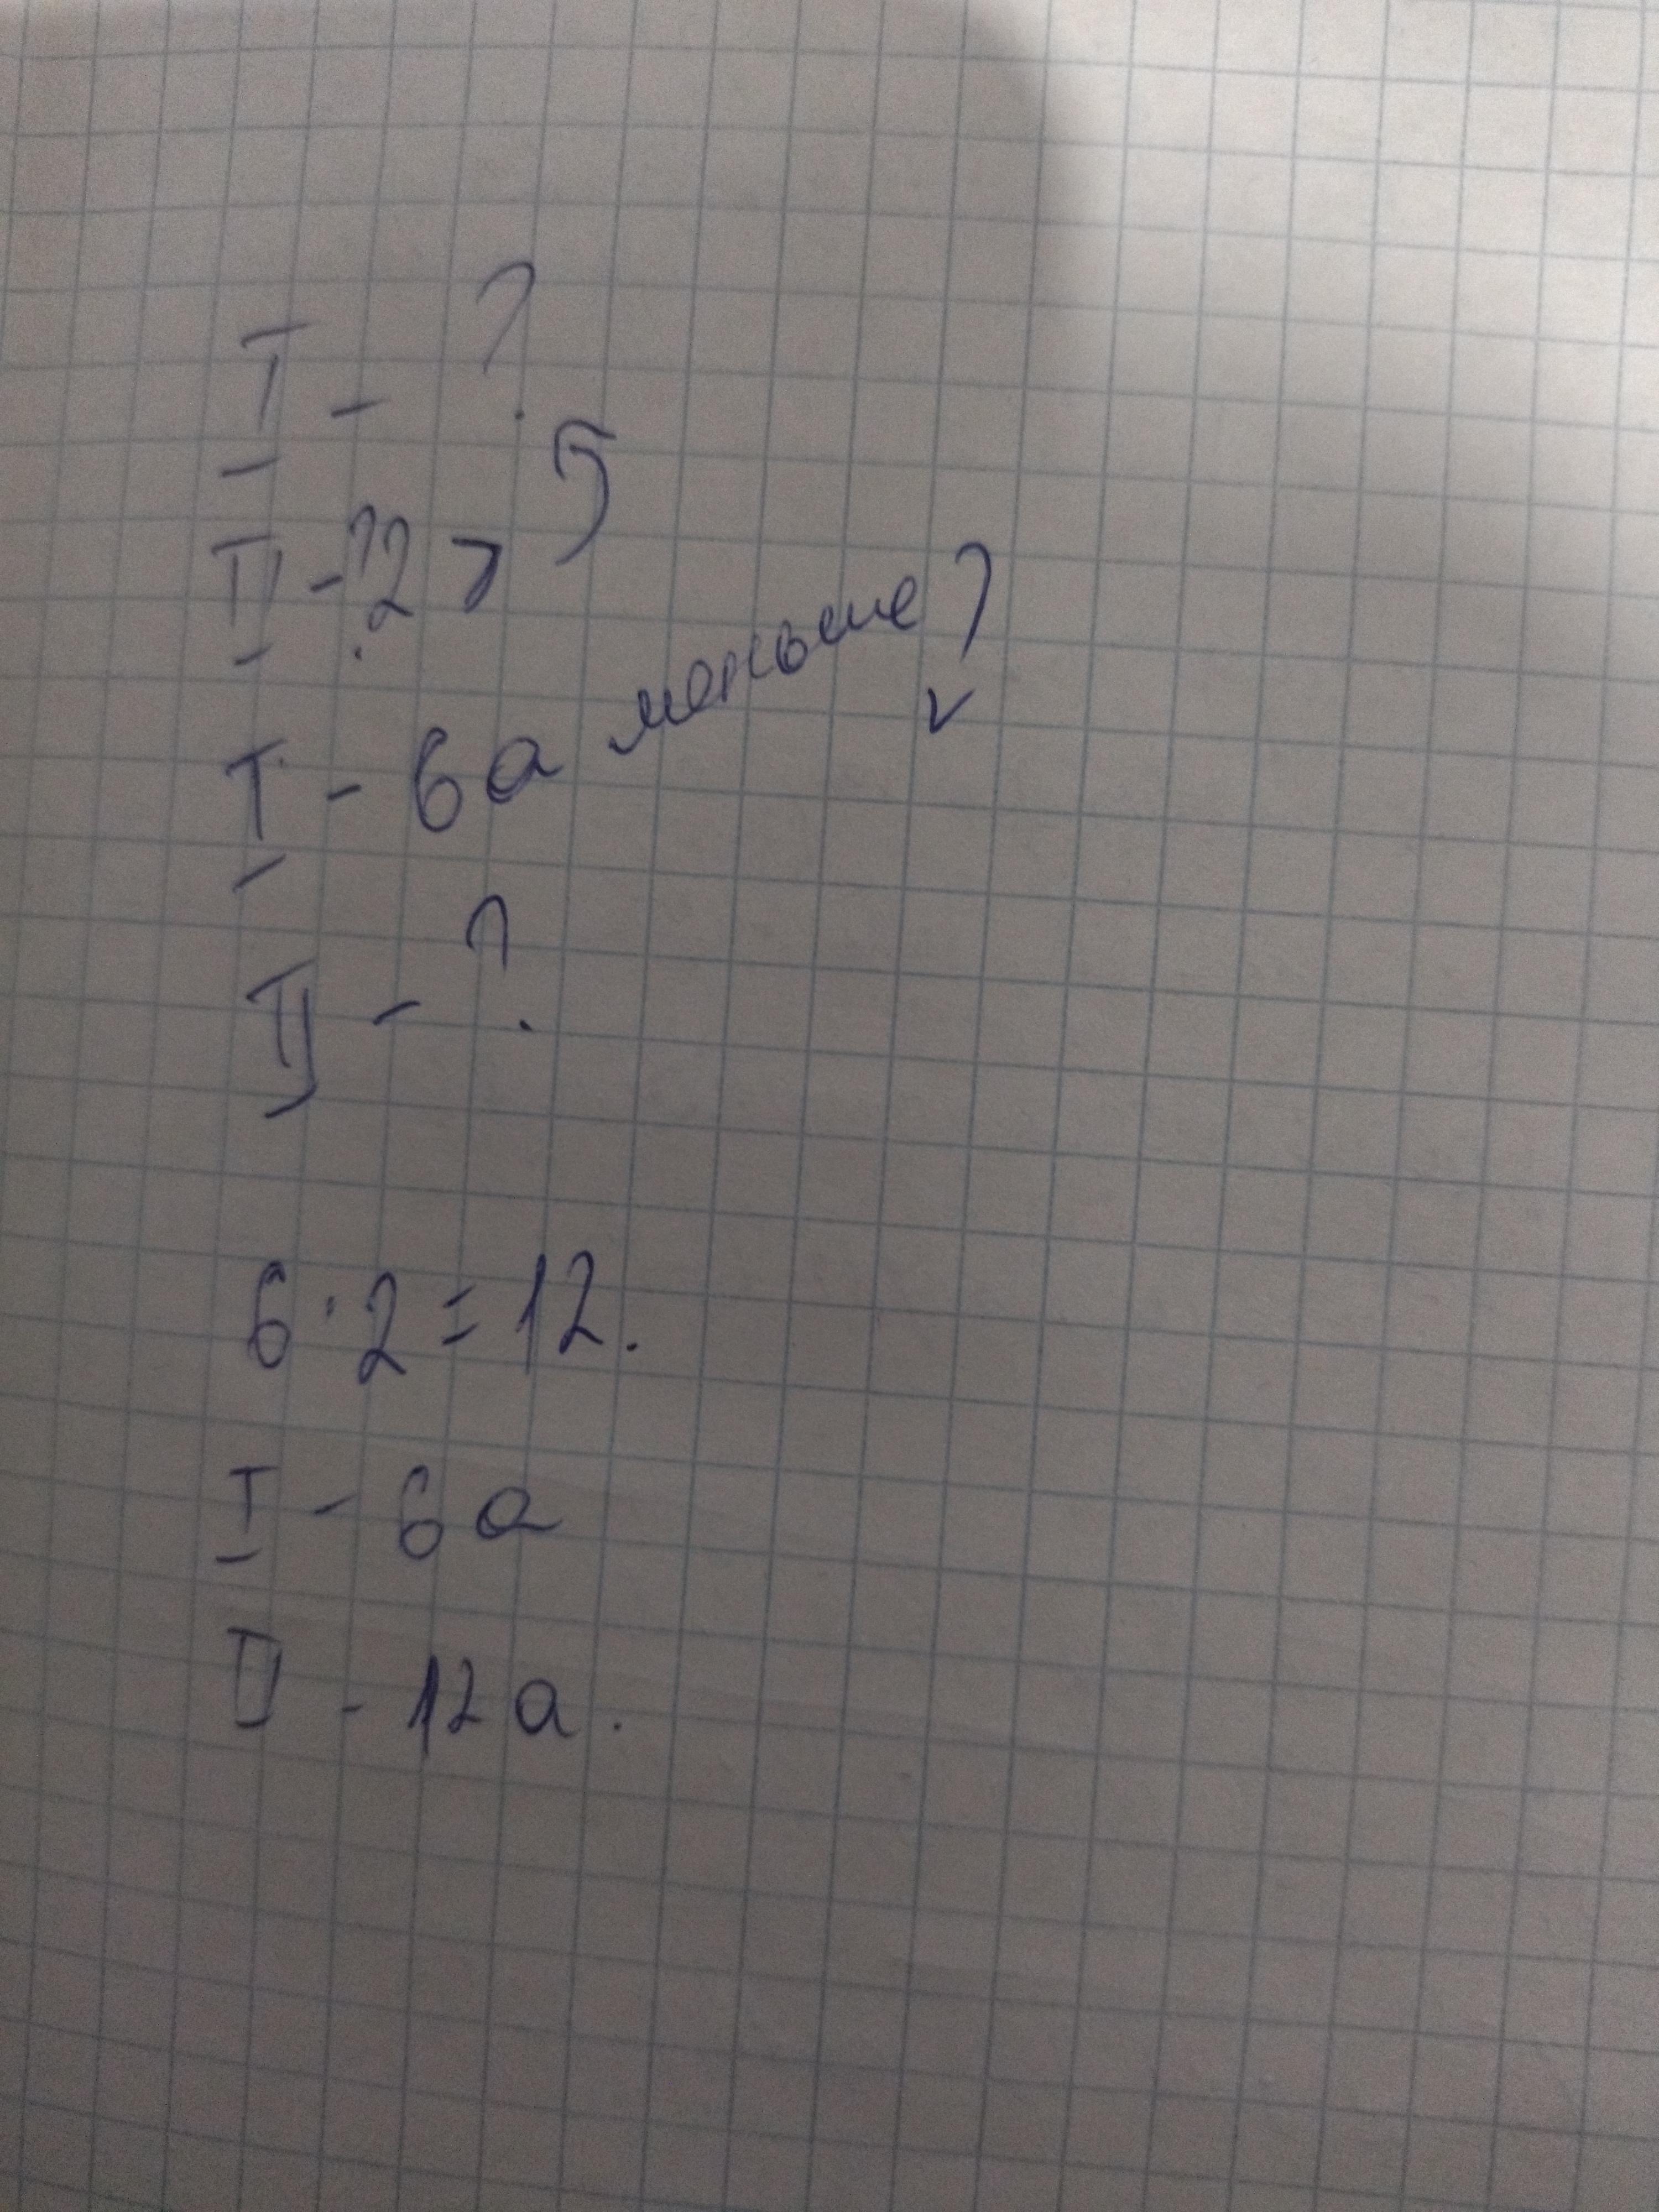 I - ?
II - ? 2 >
I - 6 а меньше ?
II - ?
6 · 2 = 12.
I - 6 а
II - 12 а.